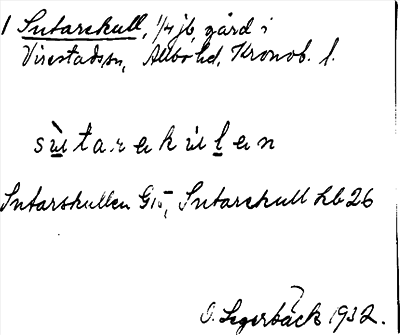 1 Sutarskull, 1/4 jb, gård i
Virestads sn, Allbo hd, Kronob. l.
sùtarekùlen
Sutarskullen G15, Sutarekull Lb 26
O. Segerbäck 1932.